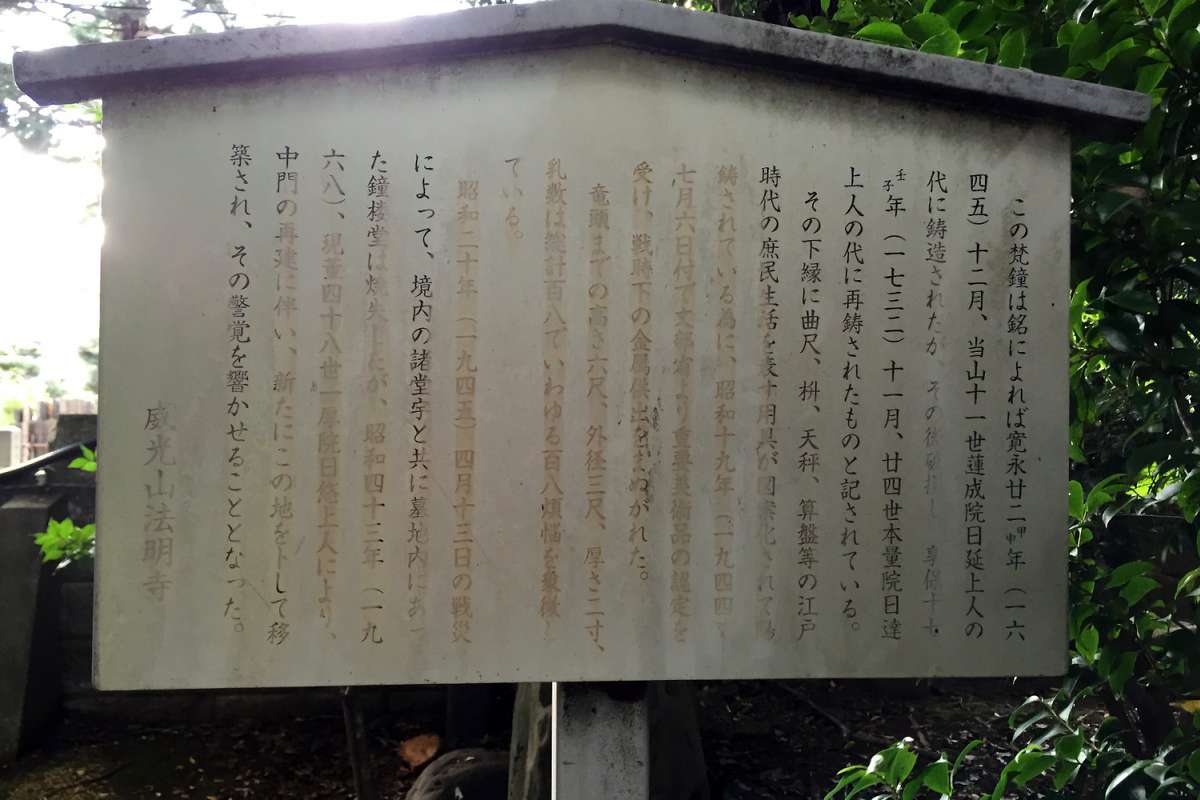 この梵鐘は銘によれば寛永廿二甲申年（一六
四五）十二月、当山十一世蓮成院日延上人の
代に鋳造されたが、その後破損し、享保十七
壬子年（一七三二）十一月、廿四世本量院日達
上人の代に再鋳されたものと記されている。
その下縁に曲尺、枡、天秤、算盤等の江戸
時代の庶民生活を表す用具が図案化されて陽
鋳されている為に、昭和十九年（一九四四）
七月六日付で文部省より重要美術品の認定を
受け、戦時下の金属供出をまぬがれた。
竜頭までの高さ六尺、外径三尺、厚さ二寸、
乳数は総計百八でいわゆる百八煩悩を象徴し
ている。
昭和二十年（一九四五）四月十三日の戦災
によって、境内の諸堂宇と共に墓地内にあっ
た鐘楼堂は焼失したが、昭和四十三年（一九
六八）、現董四十八世一厚院日悠上人により、
中門の再建に伴い、新たにこの地を卜して移
築され、その警覚を響かせることとなった。
威光山法明寺